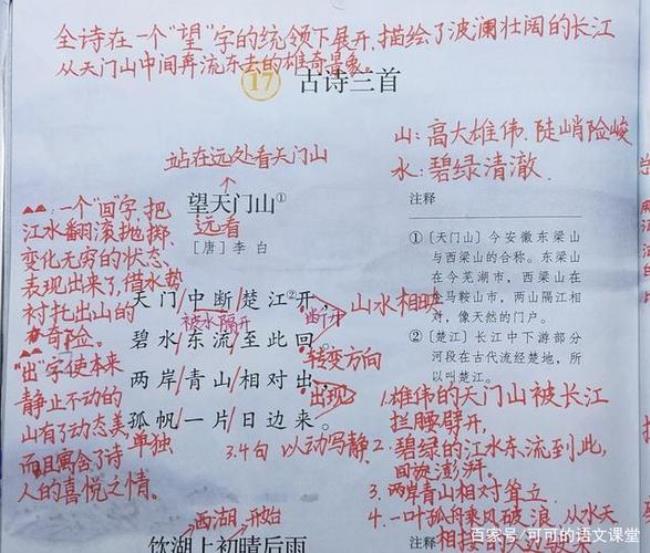 全诗在一个"望"字的统领下展开,描绘了波澜壮阔的长江
从天门山中间奔流东去的雄奇景象。
17 古诗三首
山:高大雄伟、陡峭险峻
水:碧绿清澈.
站在远处看天门山
望天门山①
远看
[唐] 李 白
注释
①〔天门山〕今安徽东梁山
与西梁山的合称。东梁山
在今芜湖市，西梁山在
马鞍山市，两山隔江相
对，像天然的门户。
②〔楚江〕长江中下游部分
河段在古代流经楚地，所
以叫楚江。
一个"回"字,把
江水翻滚抛掷、
变化无穷的状态、
表现出来了,借水势
衬托出山的
奇险。
"出"字使本来
静止不动的
山有了动态美
而且寓含了诗
人的喜悦之情。
天门/中断/楚江②开，
被水隔开
山水相映
碧水/东流/至此回。
转变方向
两岸/青山/相对出，
出现
孤帆/一片/日边来。
单独
3.4句 以动写静
1.雄伟的天门山被长江
拦腰劈开,
2.碧绿的江水东流到此,
回旋澎湃.
3.两岸青山相对耸立.
4.一叶孤舟乘风破浪 从水天
相接
西湖 开始
饮湖上初晴后雨
注释
百家号/可可的语文课堂